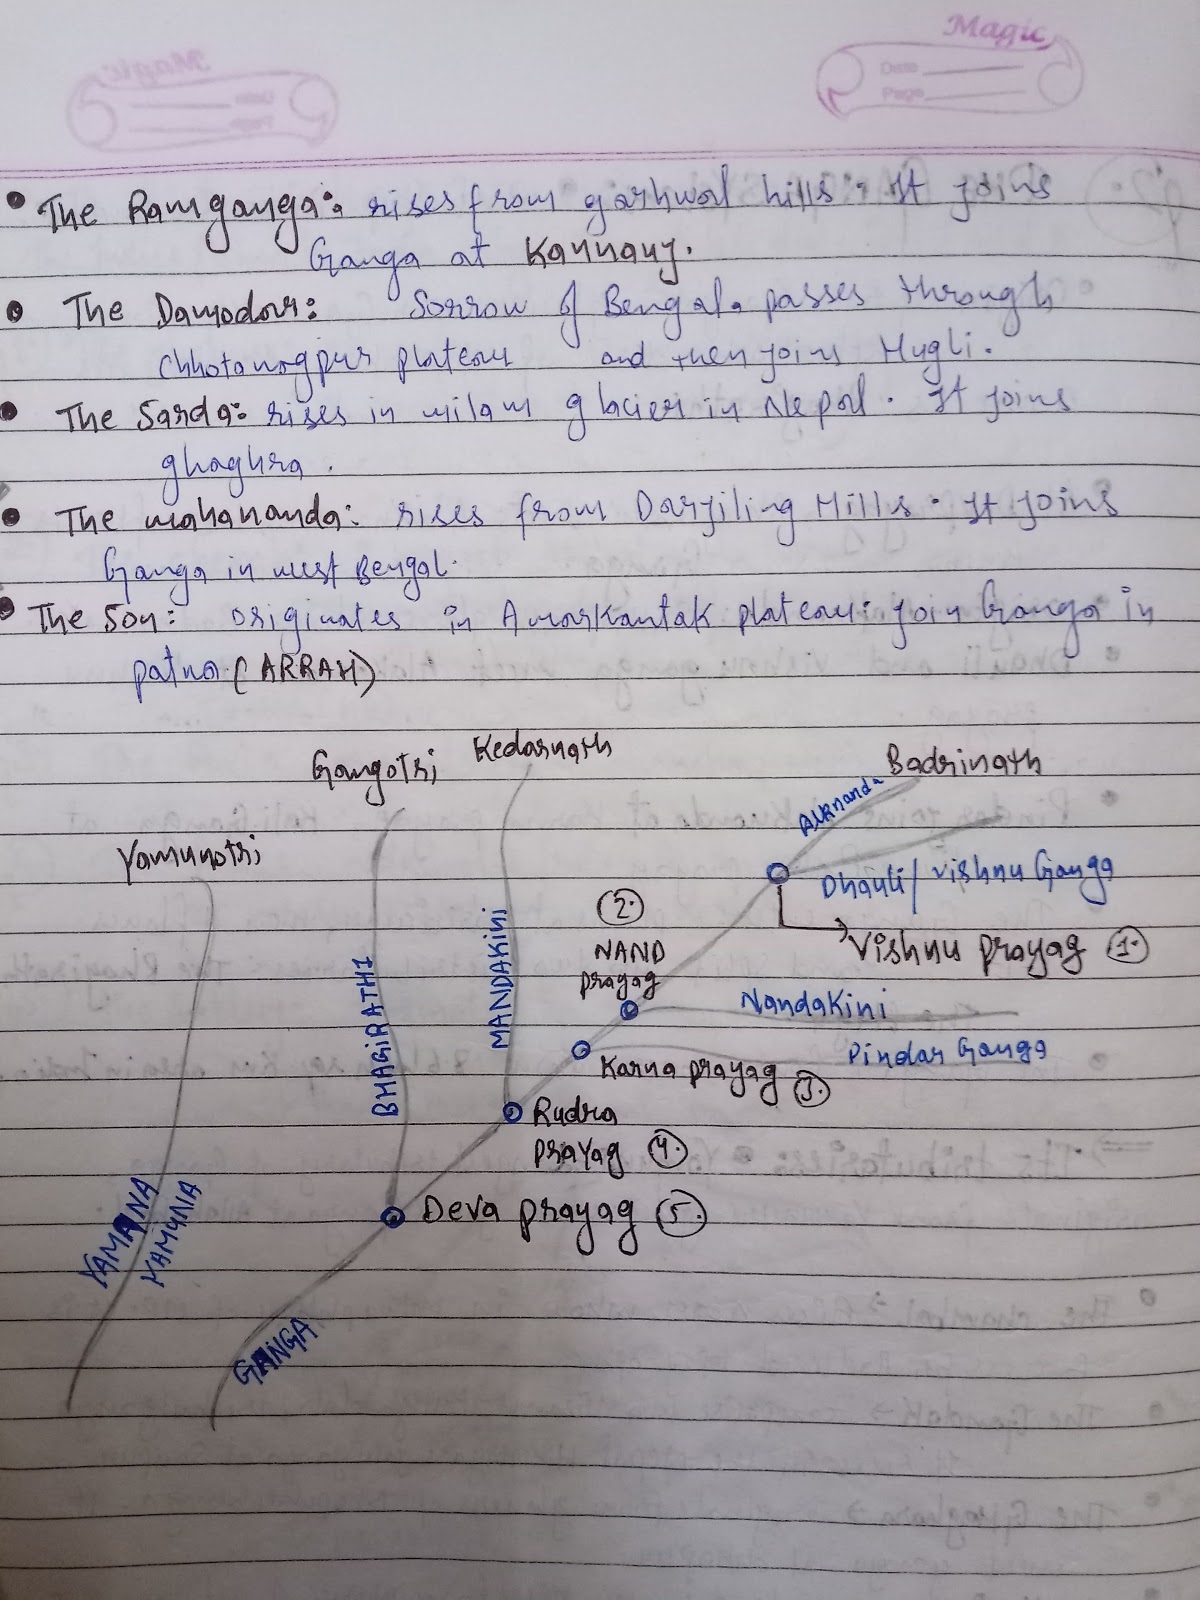 Magic
Date
Page
The Ramganga: rises from garhwal hills. It joins
Ganga at Kannauj.
The Damodar: Sorrow of Bengal. passes through
Chhotanagpur plateau and then joins Hugli.
The Sarda: rises in milam glacier in Nepal. It joins
ghaghra.
The mahananda: rises from Darjiling Hills. It joins
Ganga in west Bengal.
The Son: originates in Amarkantak plateau. join Ganga in
patna (ARRAH)
Gangotri Kedarnath Badrinath
Alknanda
Yamunotri
Dhauli/vishnu Ganga
②
NAND
prayag
Vishnu prayag ①
MANDAKINI
BHAGIRATHI
Nandakini
Pindar Ganga
Karna prayag ③
Rudra
prayag ④
Deva prayag ⑤
YAMANA
YAMUNA
GANGA